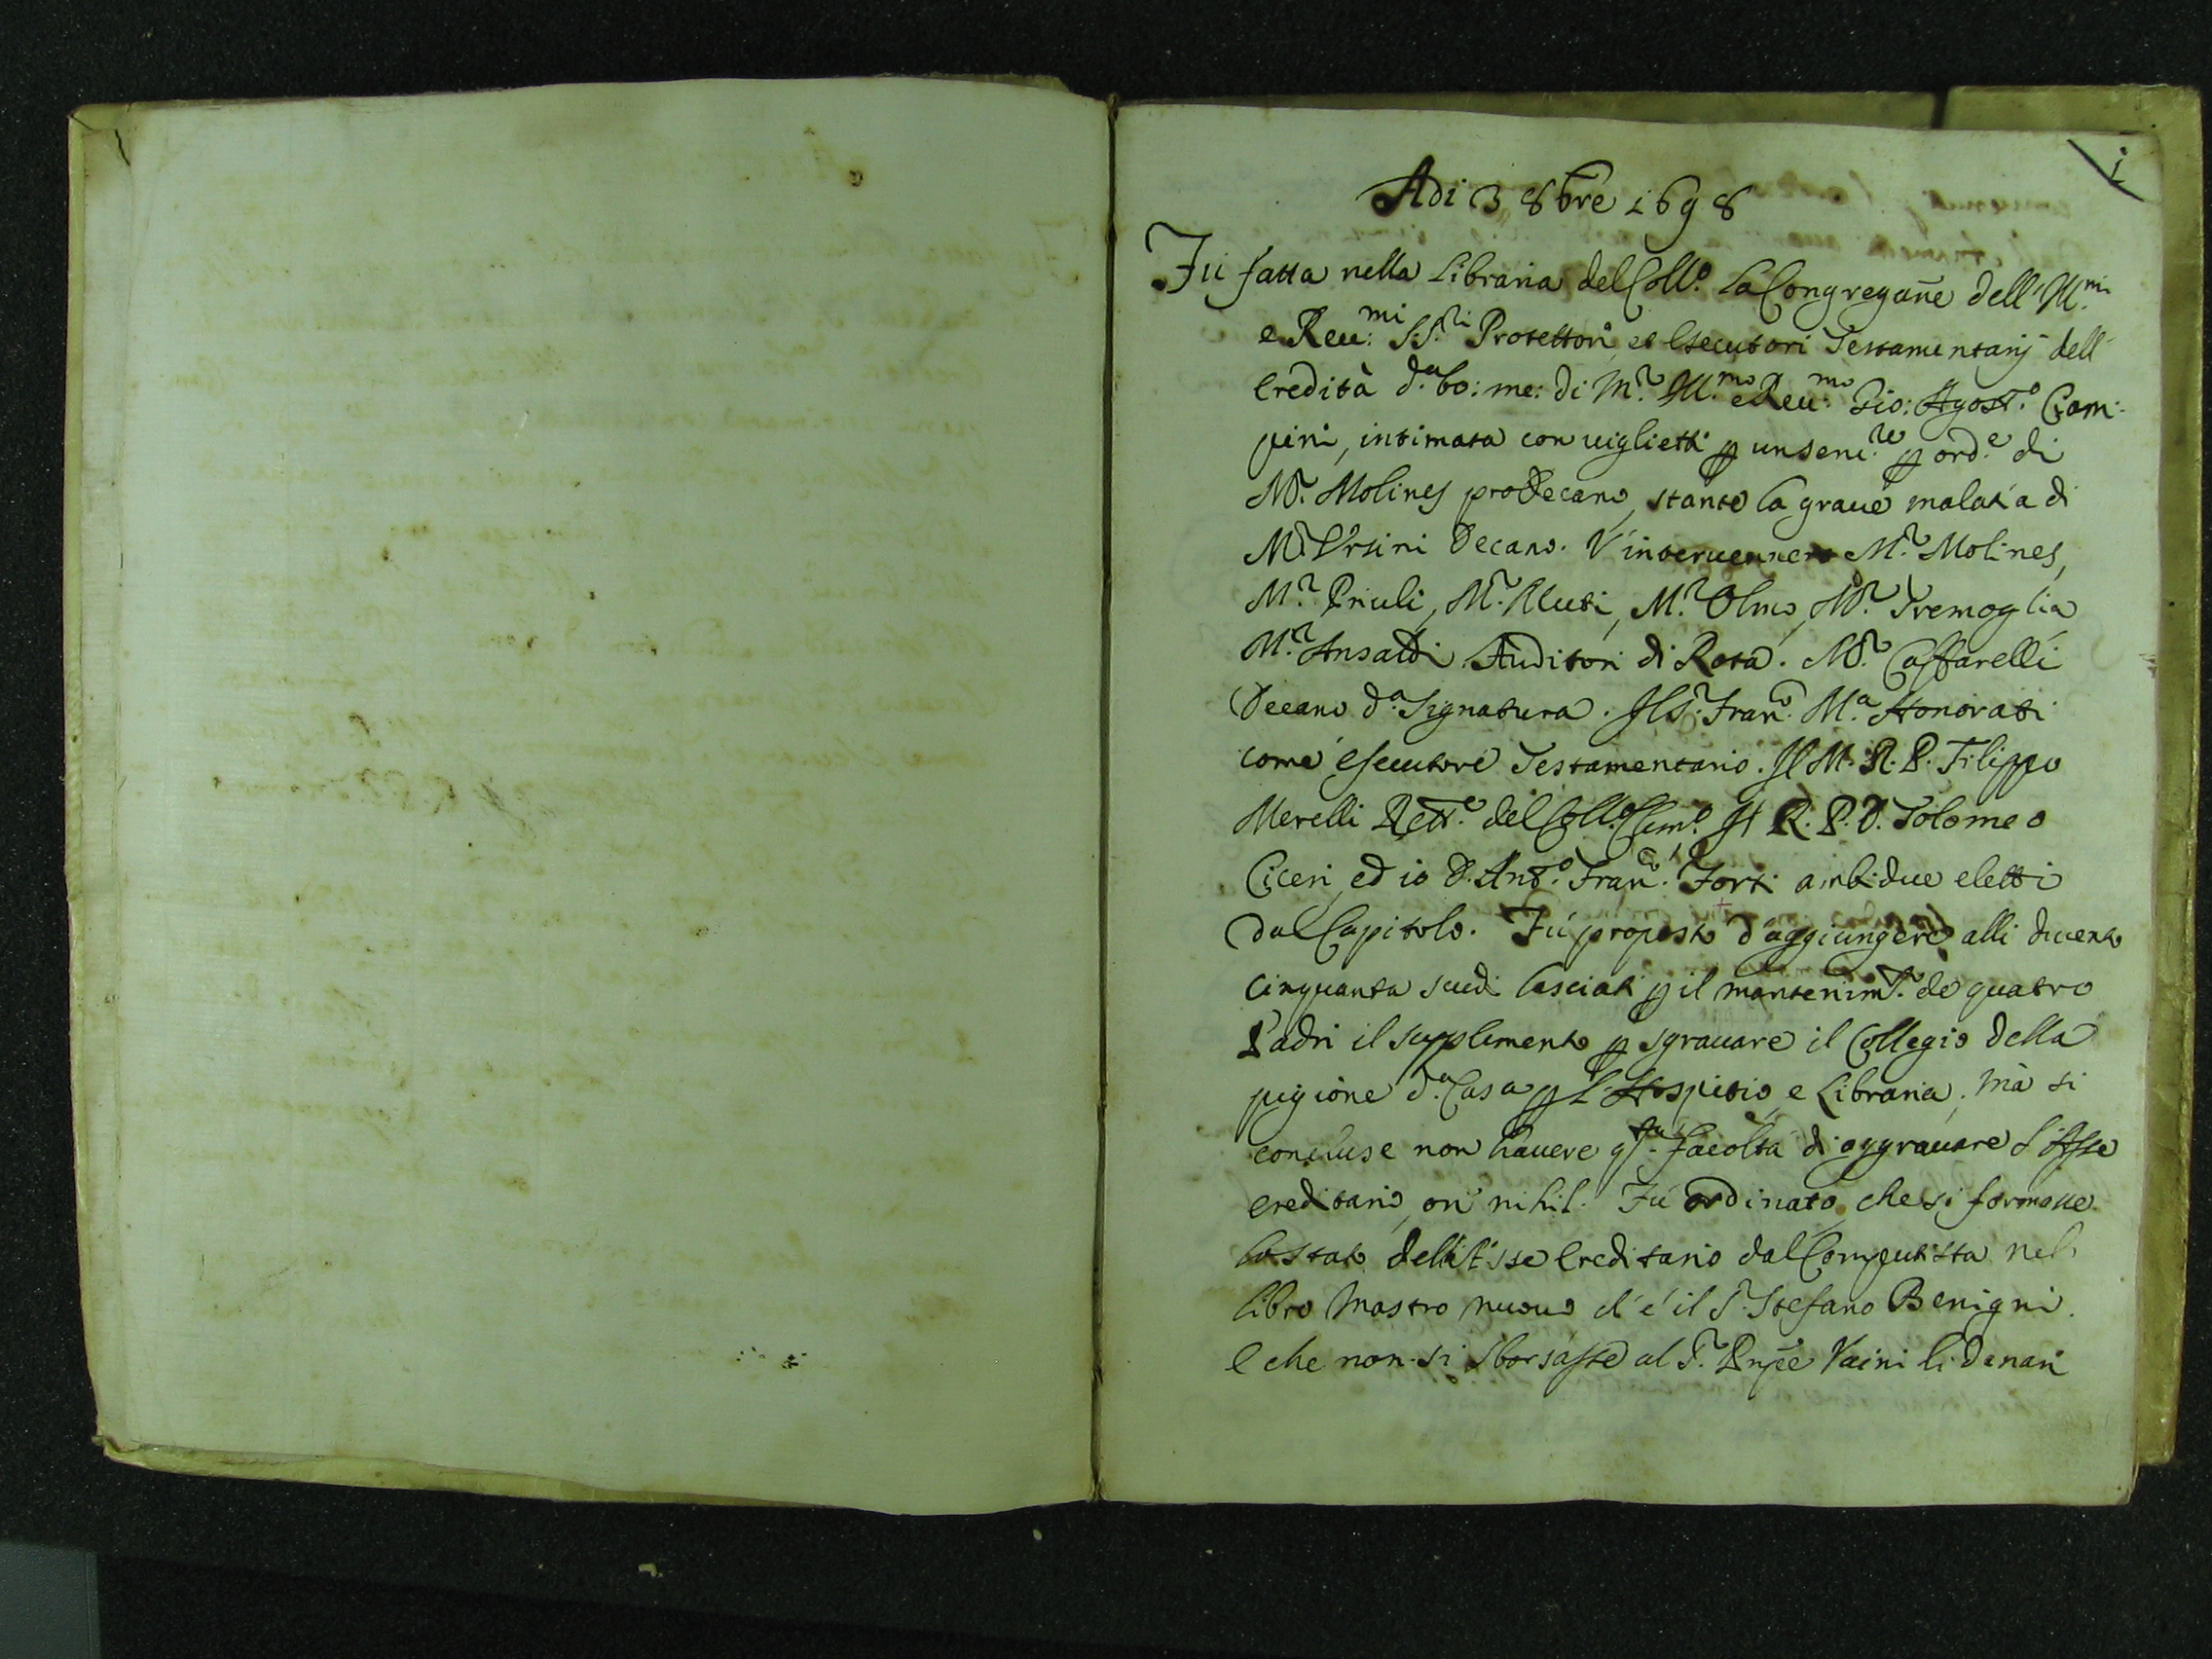 1
Adi 3 8bre 1698
Fù fatta nella Libraria del Coll.o la Congregañe dell'Ill.mi
e Reu:mi SS.ri Protettori, et Esecutori Testamentarij dell'
Eredità d.a bo: me: di M.r Ill.mo e Reu:mo Gio: Agost.o Ciam-
pini, intimata con uiglietti p un seru.re p ord.e di
M.r Molines proDecano, stante la graue malatia di
M.r Vrsini Decano. V'interuennero M.r Molines,
M.r Priuli, M.r Muti, M.r Olmo, M.r Tremoglia
M.r Ansaldi Auditori di Rota. M.r Caffarelli
Decano d.a Signatura. Il S.r Fran.co M.a Honorati
come esecutore Testamentario. Il M. R. P. Filippo
Merelli Rett.e del Coll.o Clem.o Il R. P. D. Tolomeo
Ciceri, ed io D. Ant.o Fran.co Forti ambidue eletti
dal Capitolo. Fù proposto d'aggiungere alli ducento
cinquanta scudi lasciati p il mantenim.to de quatro
Padri il supplimento p sgrauare il Collegio della
pigione d.a Casa p l'Hospitio, e Libraria. Mà si
concluse non hauere q.sta facoltà di aggrauare l'Asse
ereditario, on' nihil. Fù ordinato, che si formasse
lo stato dell'Asse Ereditario dal Computista nel
libro Mastro nuouo ch'é il S.r Stefano Benigni.
E che non si sborsasse al S.r Prñpe Vaini li denari